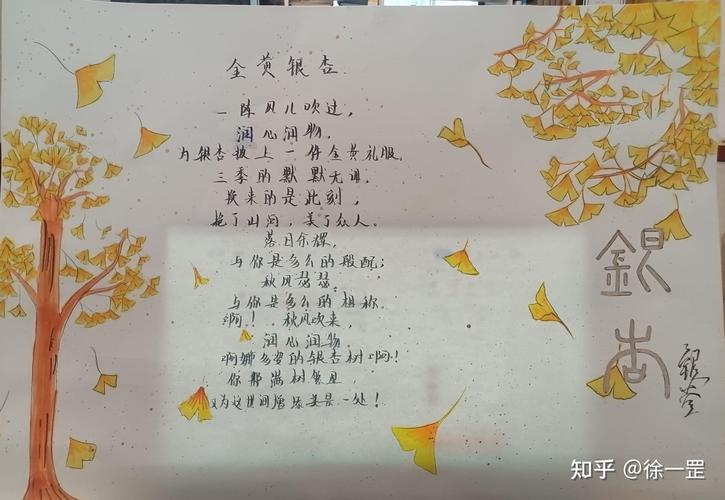 金黄银杏
一阵风儿吹过，
润心润物，
为银杏披上一件金黄礼服。
三季的默默无
换来的是此刻，
艳了山河，美了众人。
落日余辉，
与你是多么的般配；
秋风瑟瑟。
与你是多么的相称。
啊！秋风吹来，
润心润物。
婀娜多姿的银杏树啊！
你那满树
又为这世间增添美景一处！
銀杏
銀杏
知乎 @徐一罡